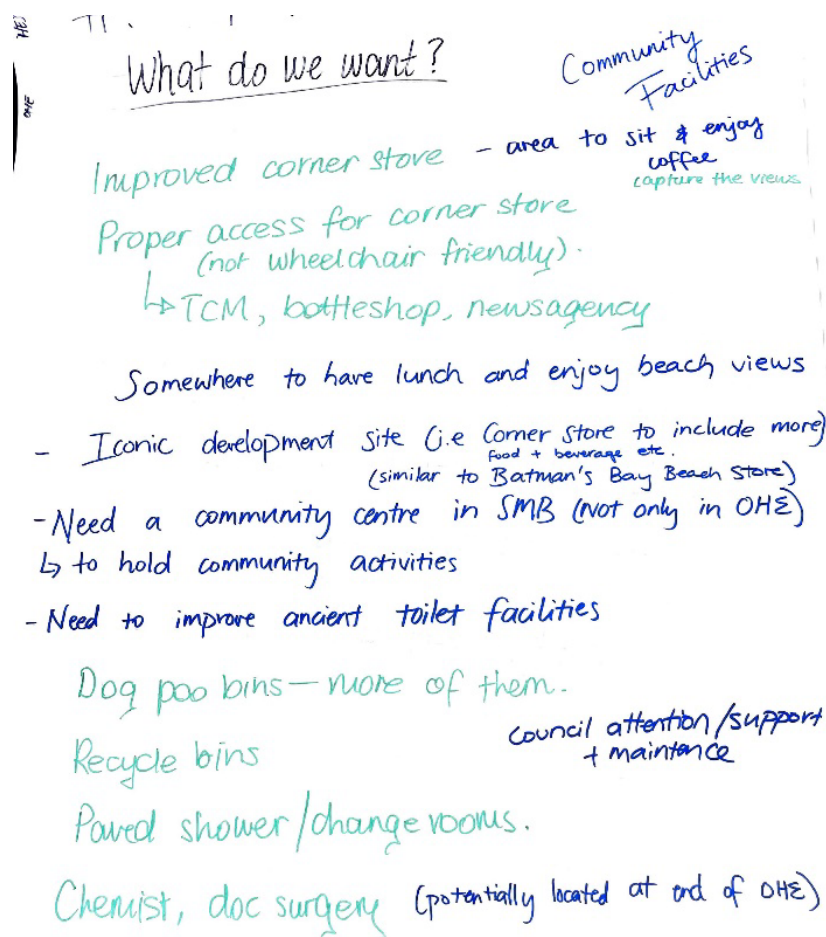 What do we want?
Community
Facilities
Improved corner store - area to sit & enjoy
coffee
capture the views
Proper access for corner store
(not wheelchair friendly).
↳ TCM, bottleshop, newsagency
Somewhere to have lunch and enjoy beach views
- Iconic development site (i.e Corner Store to include more)
food + beverage etc.
(similar to Batman's Bay Beach Store)
- Need a community centre in SMB (Not only in OHE)
↳ to hold community activities
- Need to improve ancient toilet facilities
Dog poo bins — more of them.
council attention/support
+ maintance
Recycle bins
Paved shower/change rooms.
Chemist, doc surgery (potentially located at end of OHE)